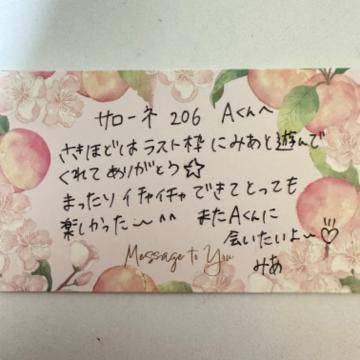 サローネ 206 Aくんへ
さきほどはラスト枠にみあと遊んで
くれてありがとう☆
まったりイチャイチャできてとっても
楽しかった〜^^ またAくんに
会いたいよ〜!!!♡
みあ
Message to You